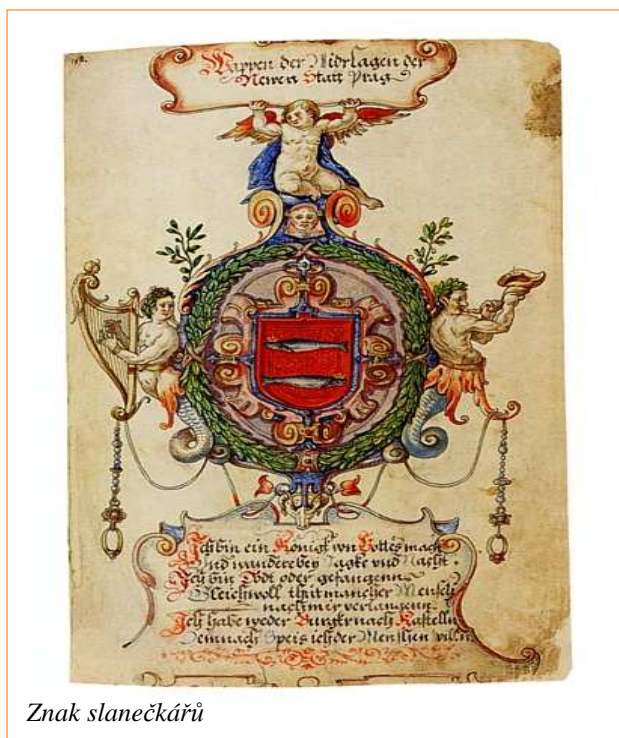 Wappen der Nidrlagen der
Newen Statt Prag
Ich bin ein Königk von Gottes mach
Und wandere bey Tagke und Nacht.
Ich bin Todt oder gefangenn
Gleichwoll thut mancher Mensch
nach mir verlangenn
Ich habe weder Burgk nach Kastelln
Demnach Speis ich der Menschen willn
Znak slanečkářů